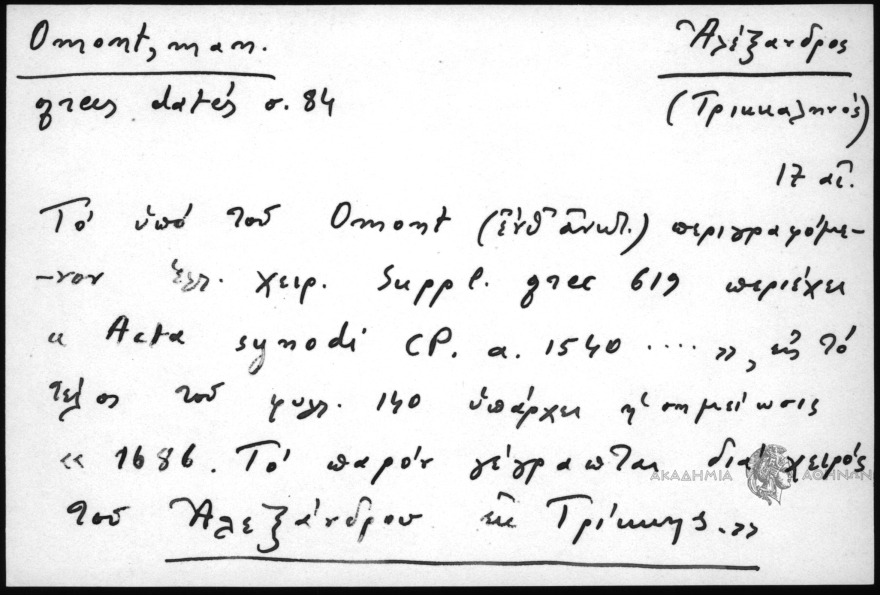 Omont, man.
grecs datés σ. 84
Ἀλέξανδρος
(Τρικκαληνός)
17 αἰ.
Τό ὑπό τοῦ Omont (ἔνθ' ἀνωτ.) περιγραφόμε-
-νον ἑλλ. χειρ. Suppl. grec 619 περιέχει
« Acta synodi CP. a. 1540 .... », εἰς τό
τέλος τοῦ φυλλ. 140 ὑπάρχει ἡ σημείωσις
« 1686. Τό παρόν γέγραπται διά χειρός
τοῦ Ἀλεξάνδρου ἐκ Τρίκκης.»
ΑΚΑΔΗΜΙΑ ΑΘΗΝΩΝ